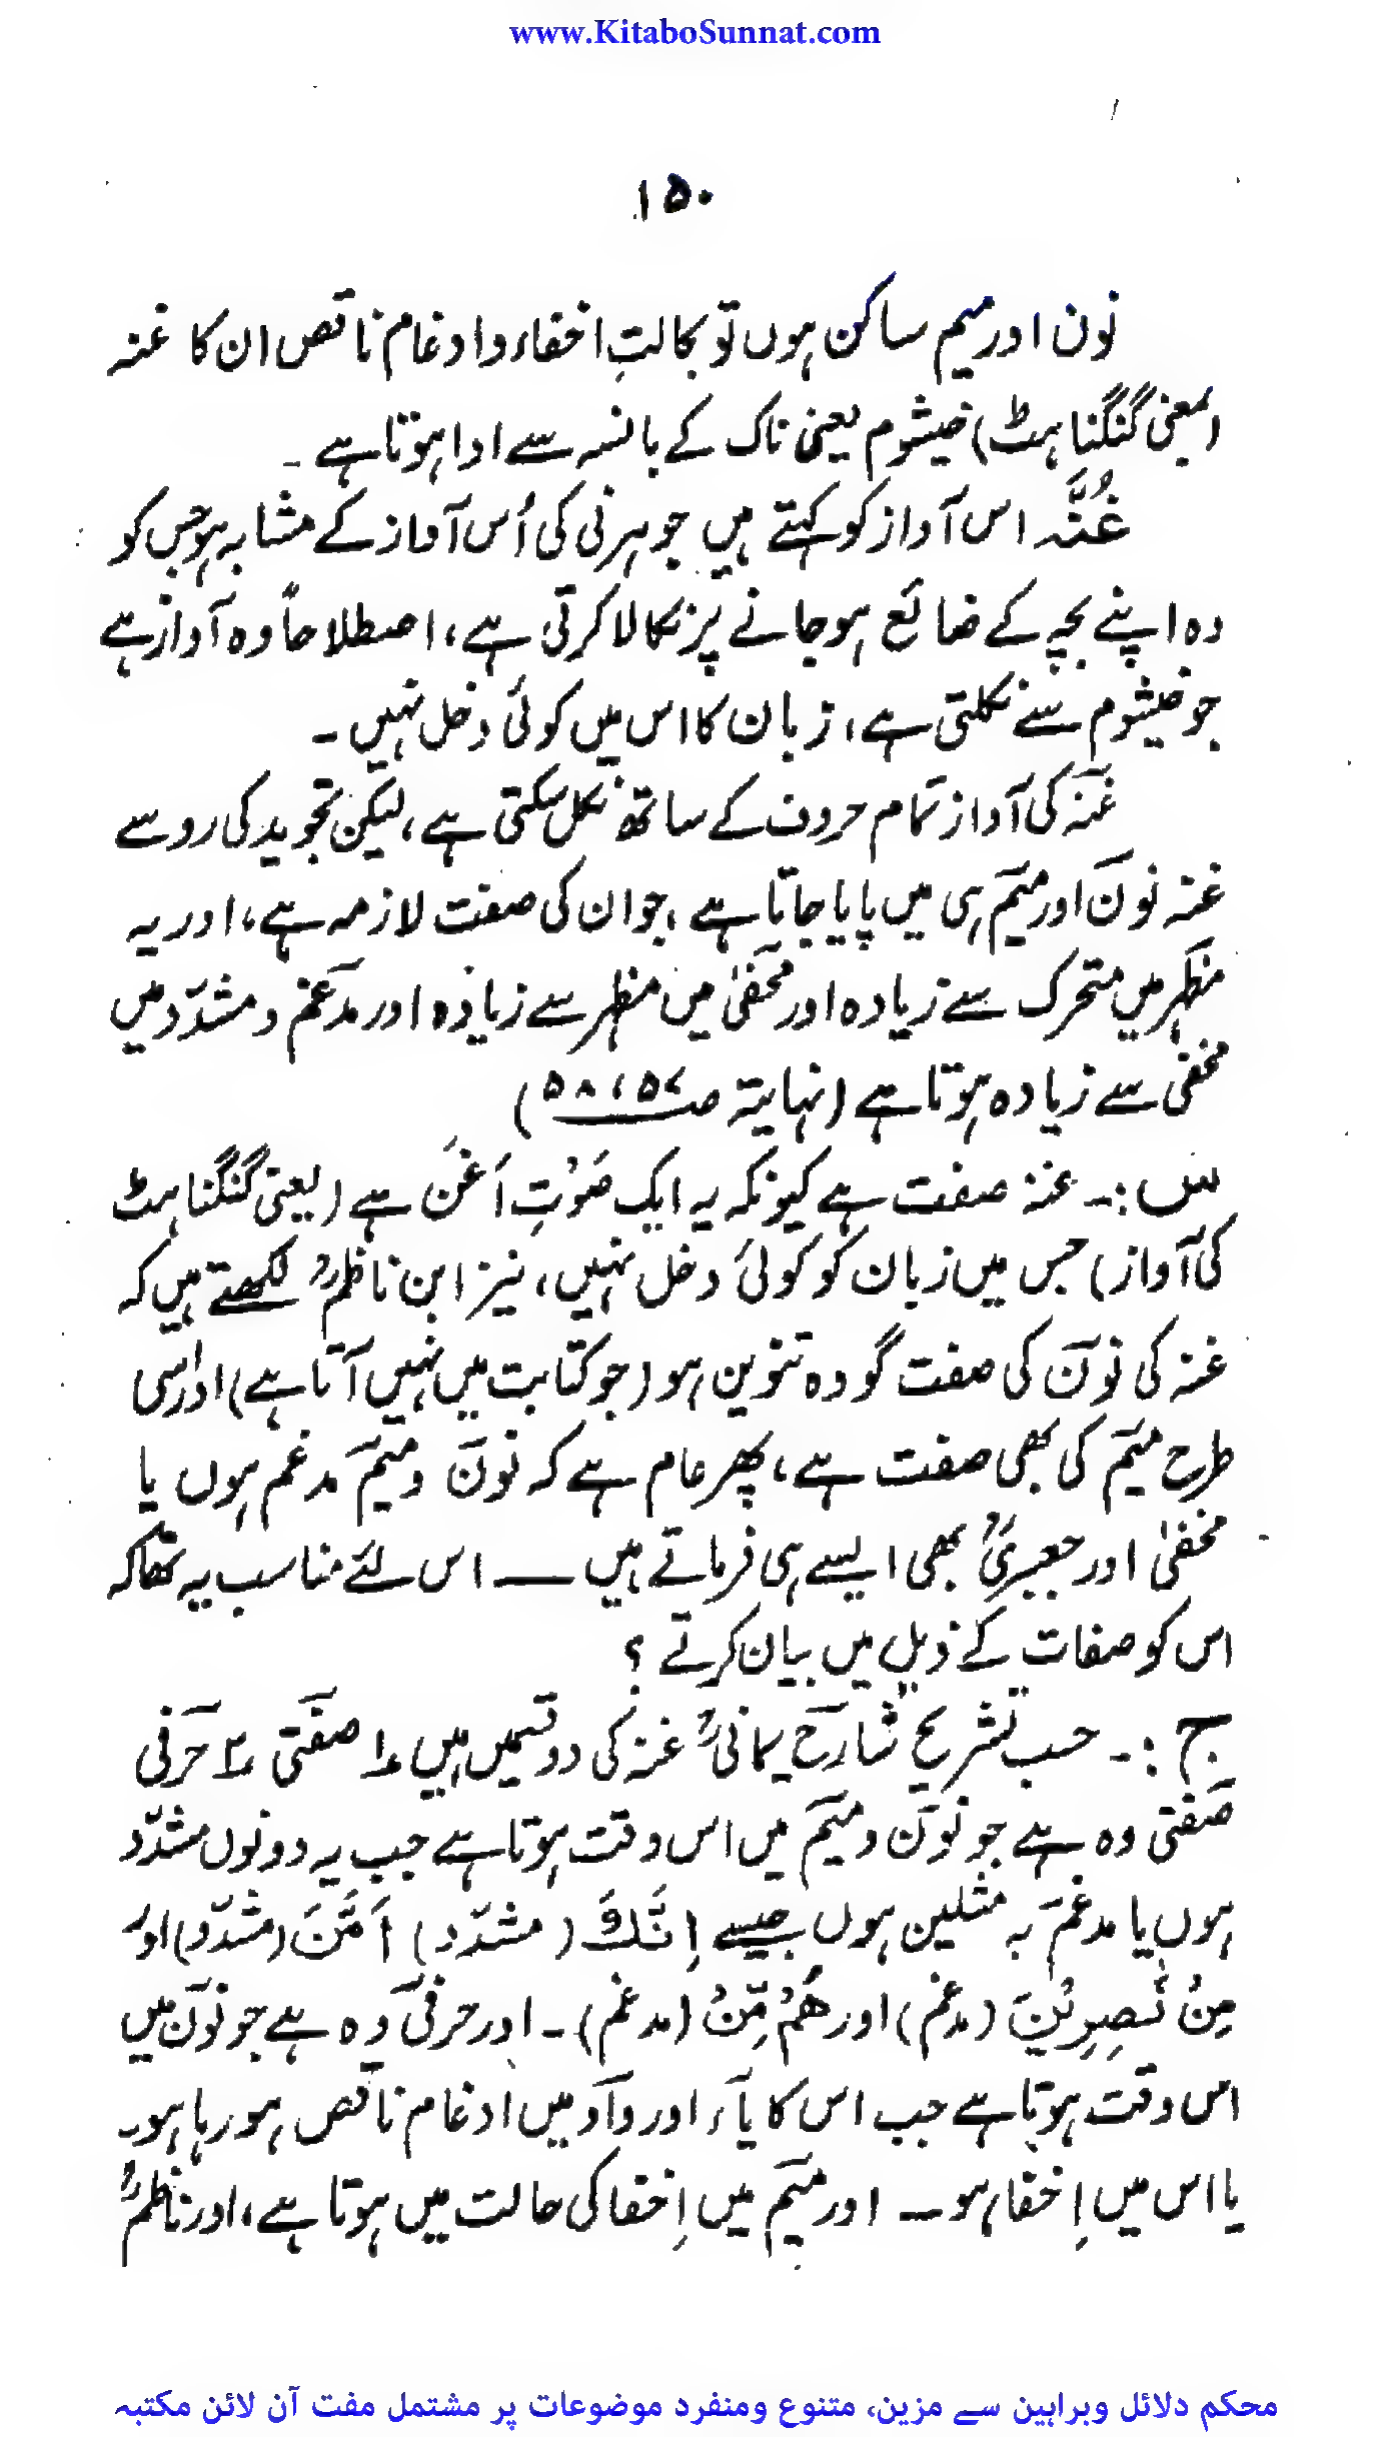 www.KitaboSunnat.com
۱۵۰
نون اور میم ساکن ہوں تو بحالتِ اخفاء و ادغام ناقص ان کا غنہ
(بمعنی گنگناہٹ) خیشوم یعنی ناک کے بانسہ سے ادا ہوتا ہے ۔
غُنَّہ اس آواز کو کہتے ہیں جو ہرنی کی اُس آواز کے مشابہ ہو جس کو
وہ اپنے بچہ کے ضائع ہو جانے پر نکالا کرتی ہے، اصطلاحاً وہ آواز ہے
جو خیشوم سے نکلتی ہے، زبان کا اس میں کوئی دخل نہیں ۔
غنہ کی آواز تمام حروف کے ساتھ نکل سکتی ہے، لیکن تجوید کی رو سے
غنہ نون اور میم ہی میں پایا جاتا ہے، جو ان کی صفت لازمہ ہے، اور یہ
مظہر میں متحرک سے زیادہ اور مخفیٰ میں مظہر سے زیادہ اور مدغم و مشدّد میں
مخفی سے زیادہ ہوتا ہے (نہایۃ صـ ۵۷، ۵۸)
س :۔ غنہ صفت ہے کیونکہ یہ ایک صَوْتِ اَغَن ہے (یعنی گنگناہٹ
کی آواز) جس میں زبان کو کوئی دخل نہیں، نیز ابن ناظمؒ لکھتے ہیں کہ
غنہ کی نون کی صفت گو وہ تنوین ہو (جو کتابت میں نہیں آتا ہے) اور اسی
طرح میم کی بھی صفت ہے، پھر عام ہے کہ نون و میم مدغم ہوں یا
مخفیٰ اور جعبریؒ بھی ایسے ہی فرماتے ہیں ــــ اس لئے مناسب یہ تھا کہ
اس کو صفات کے ذیل میں بیان کرتے ؟
ج :۔ حسب تشریح شارح یمانیؒ غنہ کی دو قسمیں ہیں ۱ صفتی ۲ حرفی
صفتی وہ ہے جو نون و میم میں اس وقت ہوتا ہے جب یہ دونوں مشدّد
ہوں یا مدغم بہ مثلین ہوں جیسے اِنَّكَ (مشدّد) اَمَّنَ (مشدّد) اور
مِنْ نّٰصِرِیْنَ (مدغم) اور هُمْ مِّنْ (مدغم) ۔ اور حرفی وہ ہے جو نون میں
اس وقت ہوتا ہے جب اس کا یآء اور واؤ میں ادغام ناقص ہو رہا ہو۔
یا اس میں اِخفا ہو ــ اور میم میں اِخفا کی حالت میں ہوتا ہے، اور ناظمؒ
محکم دلائل وبراہین سے مزین، متنوع ومنفرد موضوعات پر مشتمل مفت آن لائن مکتبہ